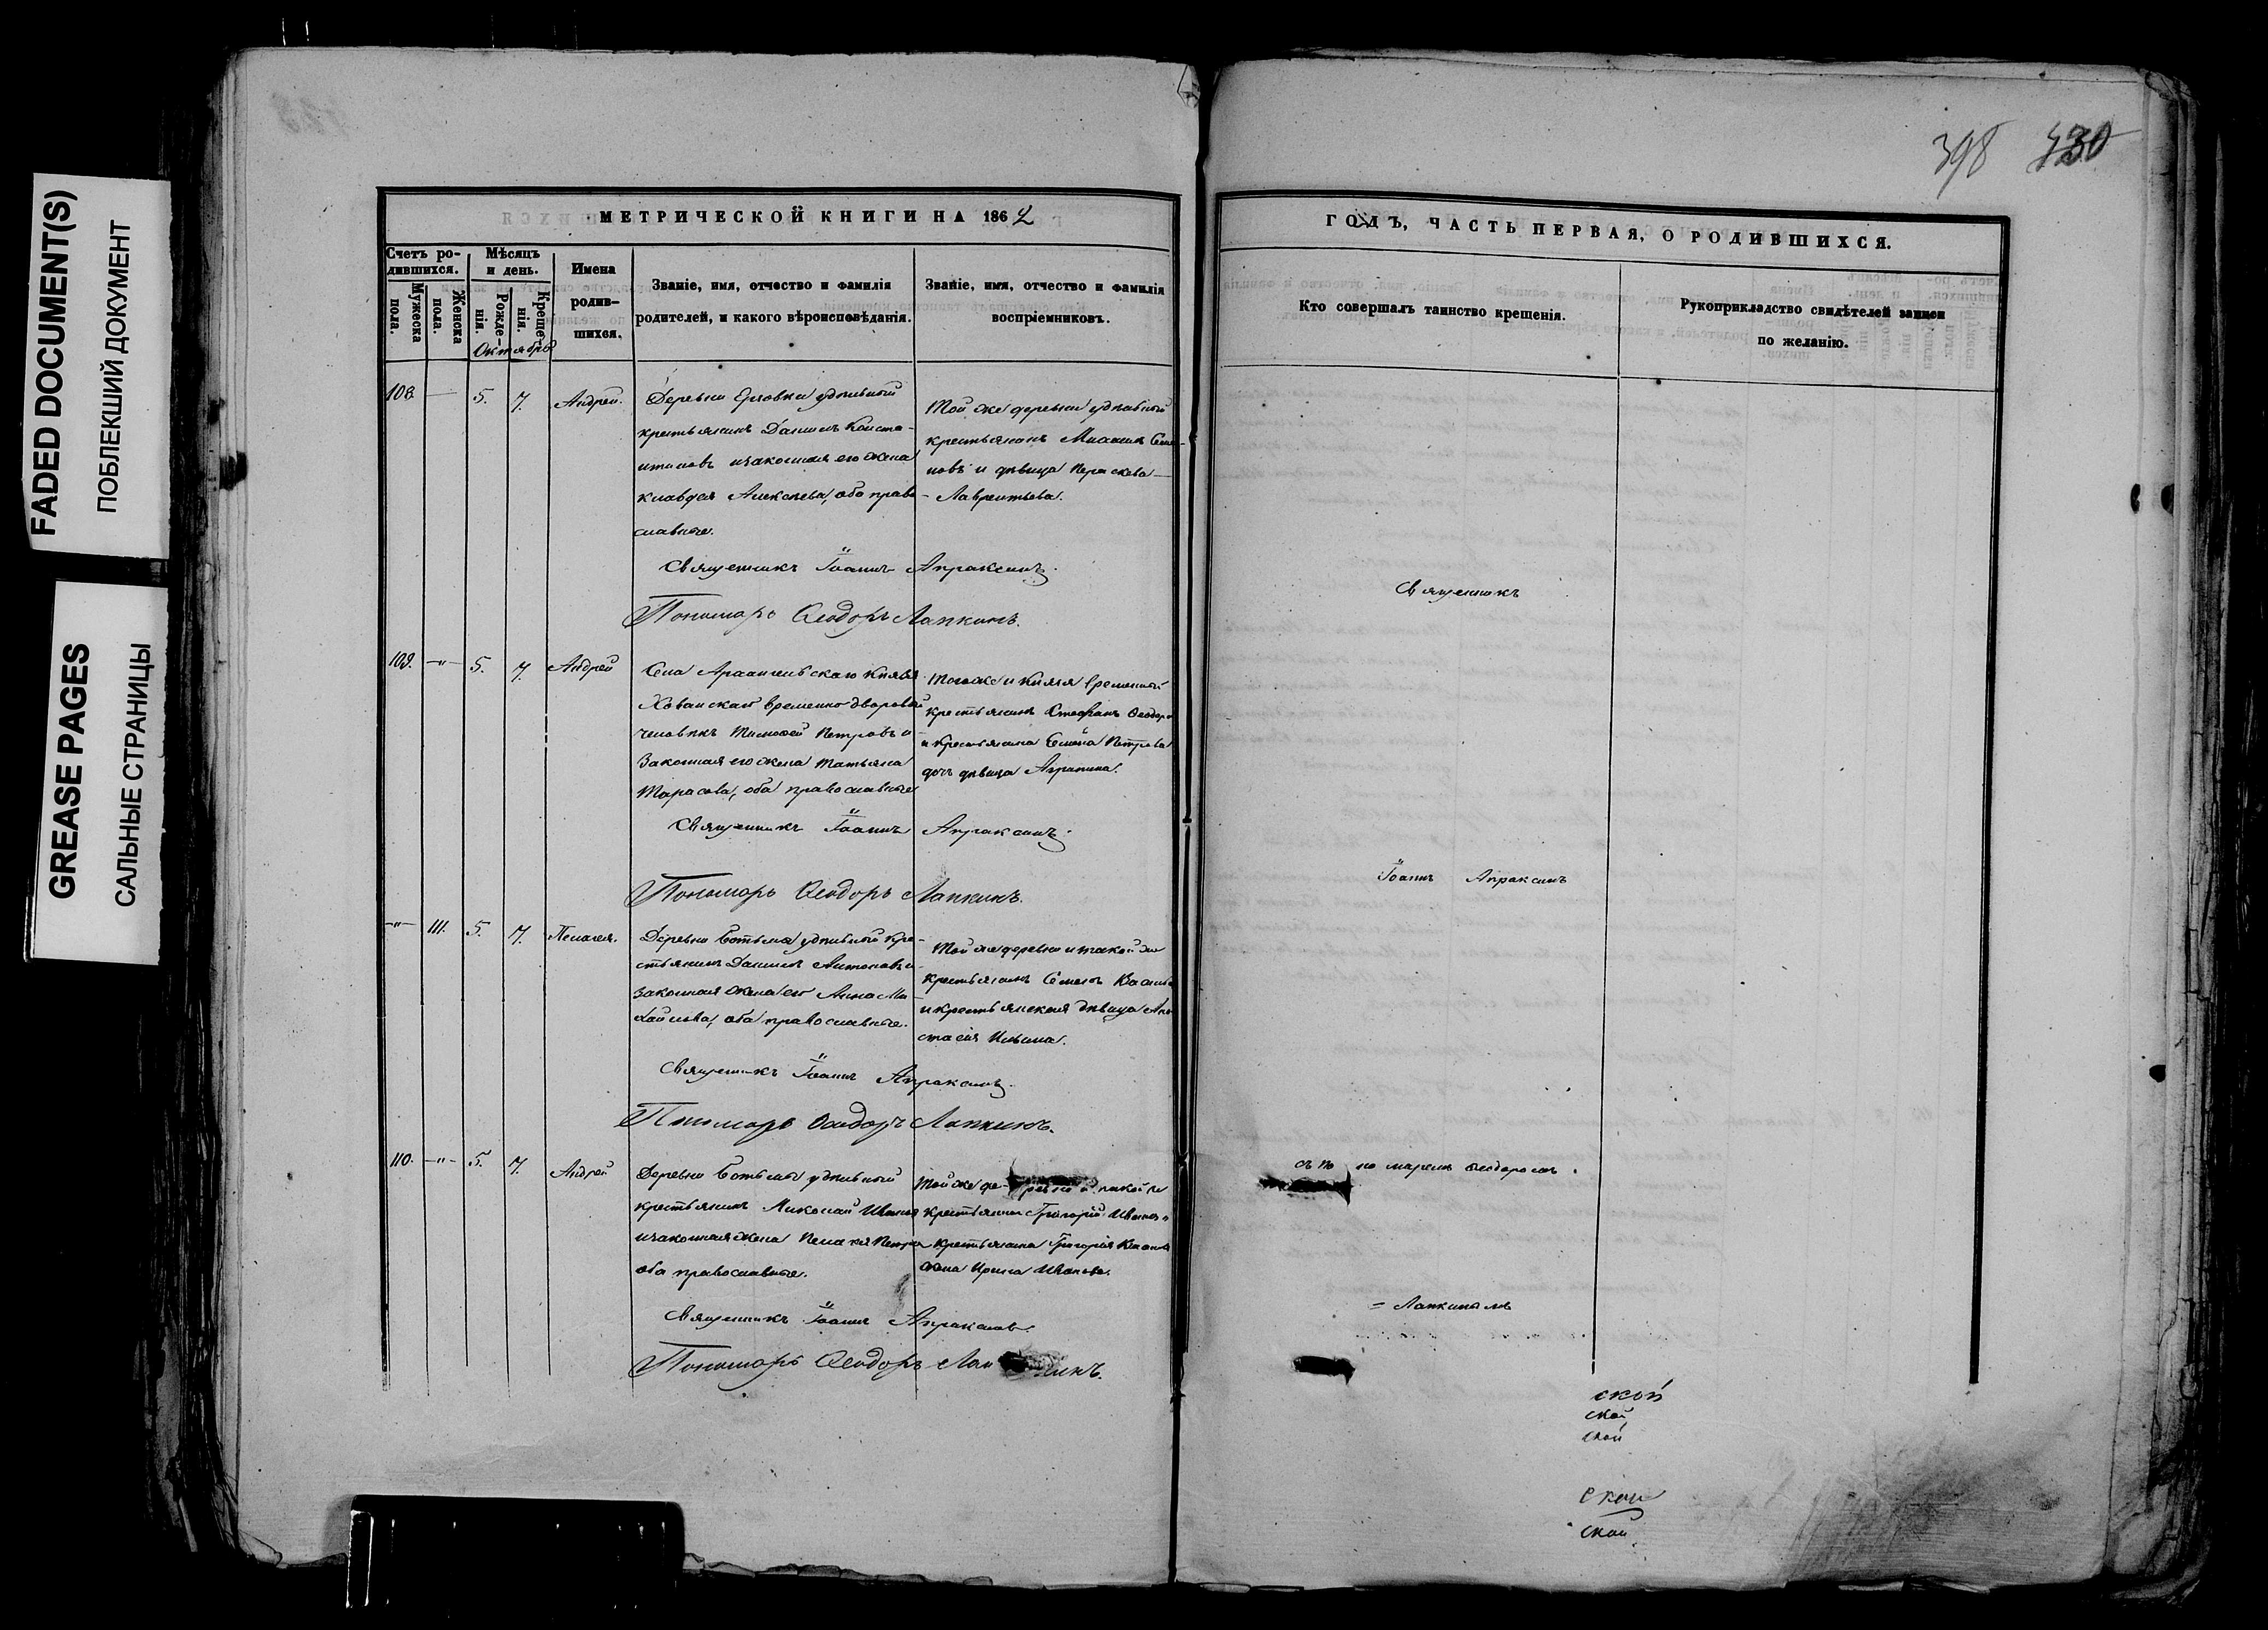 FADED DOCUMENT(S)
ПОБЛЕКШИЙ ДОКУМЕНТ
GREASE PAGES
САЛЬНЫЕ СТРАНИЦЫ
398 430
МЕТРИЧЕСКОЙ КНИГИ НА 1862
Счетъ родившихся.
Мужеска пола.
Женска пола.
Мѣсяцъ и день.
Рожденія.
Крещенія.
Имена родившихся.
Званіе, имя, отчество и фамилія
родителей, и какого вѣроисповѣданія.
Званіе, имя, отчество и фамилія
воспріемниковъ.
Октябрь
108. — 5. 7. Андрей.
Деревни удѣльный
крестьянинъ Данилъ Конста-
нтиновъ и законная его жена
Клавдія Алексѣева, оба право-
славные.
Той же деревни удѣльный
крестьянинъ Семе-
новъ и дѣвица Параскева
Лаврентьева.
Священникъ Іоаннъ Апраксинъ.
Пономарь Ѳеодоръ Лапкинъ.
109. —"— 5. 7. Андрей
Села Архангельскаго Князя
Хованскаго временно дворовый
человѣкъ Тимофей Петровъ и
законная его жена Татьяна
Тарасова, оба православные
Тогоже и Князя временный
крестьянинъ Стефанъ Ѳеодоро
и крестьянина Семёна Петрова
дочь дѣвица Агрипина.
Священникъ Іоаннъ Апраксинъ.
Пономарь Ѳеодоръ Лапкинъ.
—"— 111. 5. 7. Пелагея.
Деревни Ботьмы удѣльный кре-
стьянинъ Данилъ Антоновъ и
законная жена его Анна Ми-
хайлова, оба православные.
Той же деревни и такой же
крестьянинъ Семенъ
и крестьянская дѣвица Ана-
стасія Ильина.
Священникъ Іоаннъ Апраксинъ.
Пономарь Ѳеодоръ Лапкинъ.
110. —"— 5. 7. Андрей
Деревни Ботьмы удѣльный
крестьянинъ Николай Ивановъ
и законная жена Пелагея Петро
оба православные.
Той же деревни и такой же
крестьянинъ Григорій Ивановъ и
крестьянина Григорія
жена Ирина Иванова.
Священникъ Іоаннъ Апраксинъ.
Пономарь Ѳеодоръ Лапкинъ.
ГОДЪ, ЧАСТЬ ПЕРВАЯ, О РОДИВШИХСЯ.
Кто совершалъ таинство крещенія.
Рукоприкладство свидѣтелей записи
по желанію.
Священникъ
Іоаннъ Апраксинъ
съ пономаремъ Ѳеодоромъ
= Лапкинымъ
ской
ской
ской
ской
ской